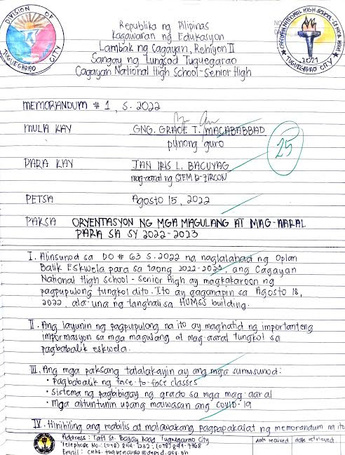 Republika ng Pilipinas
Kagawaran ng Edukasyon
Lambak ng Cagayan, Rehiyon II
Sangay ng Lungsod Tuguegarao
Cagayan National High School-Senior High
DIVISION OF
TUGUEGARAO
CITY
TUGUEGARAO CITY
MEMORANDUM # 1, S. 2022
MULA KAY GNG. GRACE T. MACABABBAD
punong guro
25
PARA KAY IAN IRIS L. BACUYAG
mag-aaral ng STEM 12-ZIRCON
PETSA Agosto 15, 2022
PAKSA ORYENTASYON NG MGA MAGULANG AT MAG-AARAL
PARA SA SY 2022-2023
I. Alinsunod sa DO # 63 S. 2022 na naglalahad ng Oplan
Balik Eskwela para sa taong 2022-2023, ang Cagayan
National High School - Senior High ay magkakaroon ng
pagpupulong tungkol dito. Ito ay gaganapin sa Agosto 18,
2022, ala-una ng tanghali sa HUMSS building.
II. Ang layunin ng pagpupulong na ito ay maghatid ng importanteng
impormasyon sa mga magulang at mag-aaral tungkol sa
pagbabalik eskwela.
III. Ang mga paksang tatalakayin ay ang mga sumusunod:
• Pagbabalik ng face-to-face classes
• Sistema ng pagbibigay ng grado sa mga mag-aaral
• Mga alituntunin upang maiwasan ang COVID-19
IV. Hinihiling ang mabilis at malawakang pagpapakalat ng memorandum na ito.
Address: Taft St. Bagay Road Tuguegarao City
Telephone No.:
Email: